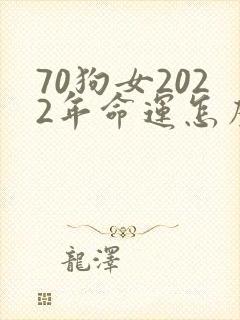 70狗女202
2年命运怎
龍澤